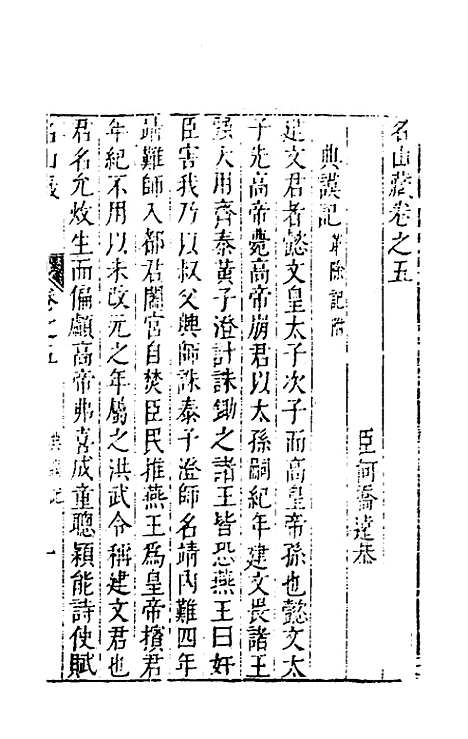 名山藏卷之五
臣何喬遠恭
典謨記
建文君者懿文皇太子次子而高皇帝孫也懿文太
子先高帝薨高帝崩君以太孫嗣紀年建文畏諸王
强大用齊泰黃子澄計誅鋤之諸王皆恐燕王曰奸
臣害我乃以叔父興師誅泰子澄師名靖內難四年
靖難師入都君闔宮自焚臣民推燕王為皇帝擯君
年紀不用以未改元之年屬之洪武令稱建文君也
君名允炆生而偏顱高帝弗喜成童聰穎能詩使賦
名山藏 卷之五 典謨記 一